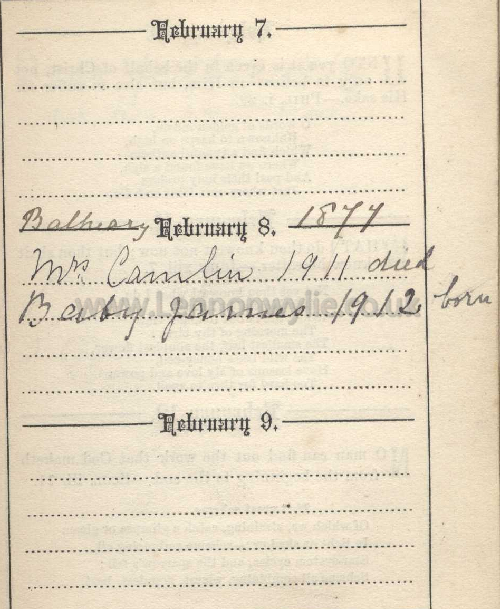 February 7.
February 8. 1877
Mrs Camlin 1911 died
Baby James 1912 born
www.Lennonwylie.co.uk
February 9.